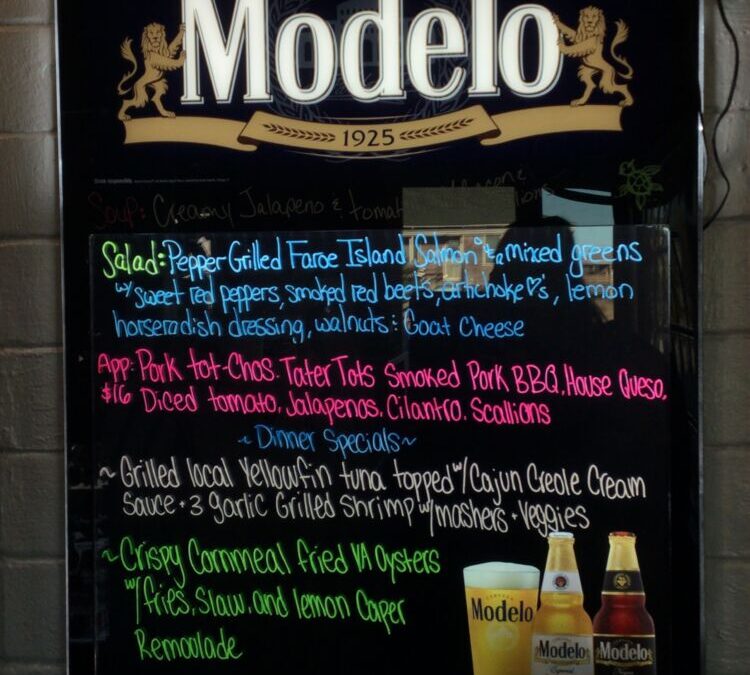 Modelo
1925
Soup: Creamy Jalapeno & tomato
Salad: Pepper Grilled Faroe Island Salmon mixed greens
w/ sweet red peppers, smoked red beets, artichoke ♡'s, lemon
horseradish dressing, walnuts : Goat Cheese
App: Pork tot-Chos. Tater Tots Smoked Pork BBQ, House Queso,
$16 Diced tomato, Jalapenos, Cilantro, Scallions
~ Dinner Specials ~
~ Grilled local Yellowfin tuna topped w/ Cajun Creole Cream
Sauce + 3 garlic Grilled Shrimp w/ mashers + Veggies
~ Crispy Cornmeal fried VA Oysters
w/ fries, Slaw, and lemon Caper
Remoulade
Modelo
Modelo
Modelo